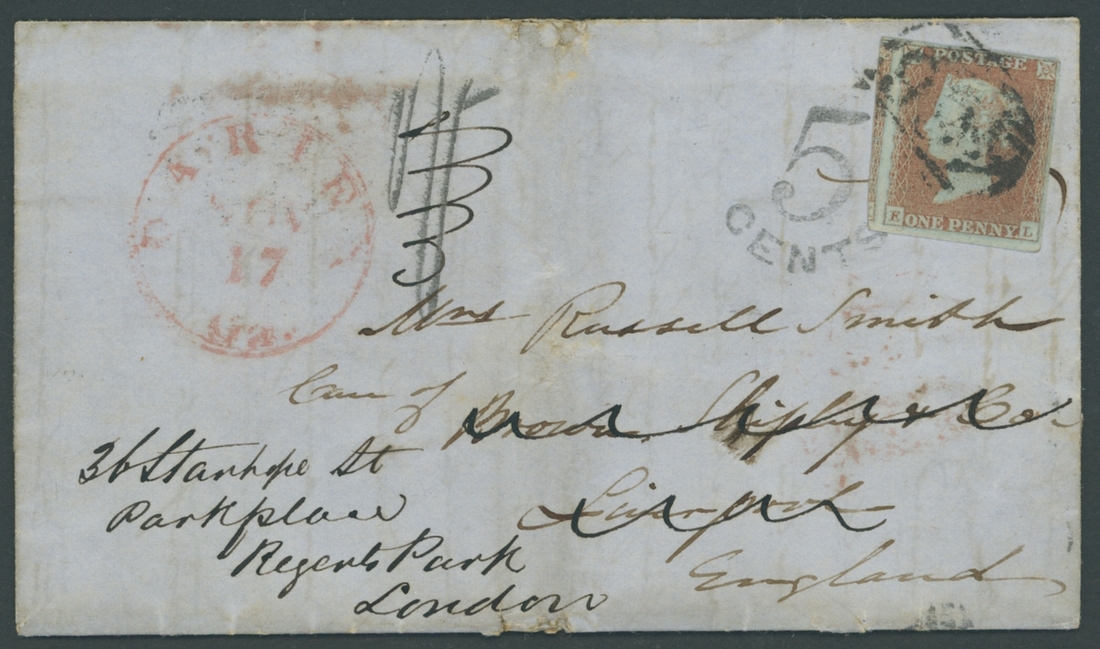 DARIEN
17
Ga.
5
CENTS
POSTAGE
E ONE PENNY L
Mrs Russell Smith
Care of Brown Shipley & Co
Liverpool
England
36 Stanhope St
Park place
Regents Park
London